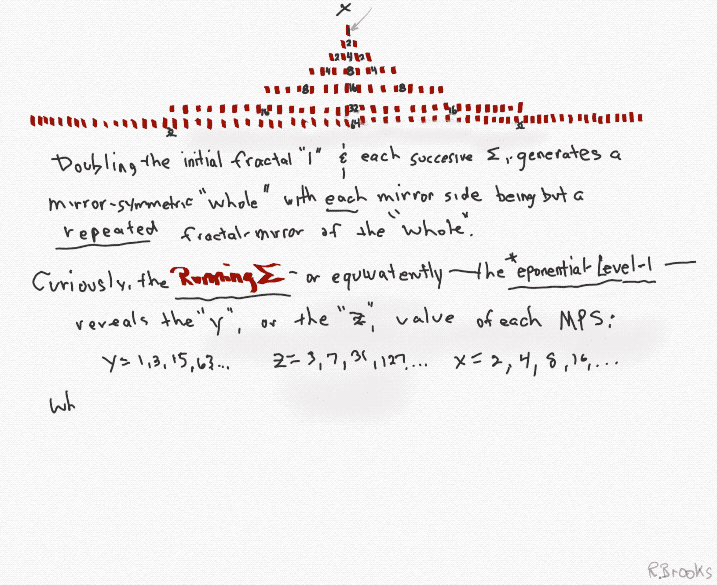 X
2
2 4 2
4 8 4
8 16 8
16 32 16
32 64 32
Doubling the initial fractal "1" & each succesive Σ, generates a
mirror-symmetric "whole" with each mirror side being but a
repeated fractal-mirror of the "whole".
Curiously, the Running Σ - or equivatently - the *eponential Level-1 -
reveals the "y", or the "z", value of each MPS:
Y = 1, 3, 15, 63... Z = 3, 7, 31, 127... X = 2, 4, 8, 16, ...
Wh
R.Brooks